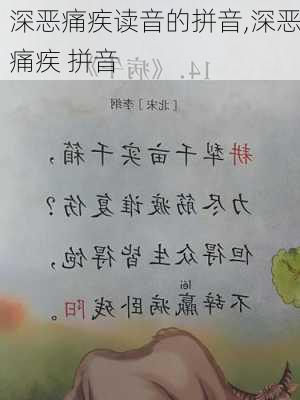 深恶痛疾读音的拼音,深恶
痛疾 拼音
14.《病牛》
[北宋] 李纲
耕犁千亩实千箱，
力尽筋疲谁复伤？
但得众生皆得饱，
léi
不辞羸病卧残阳。